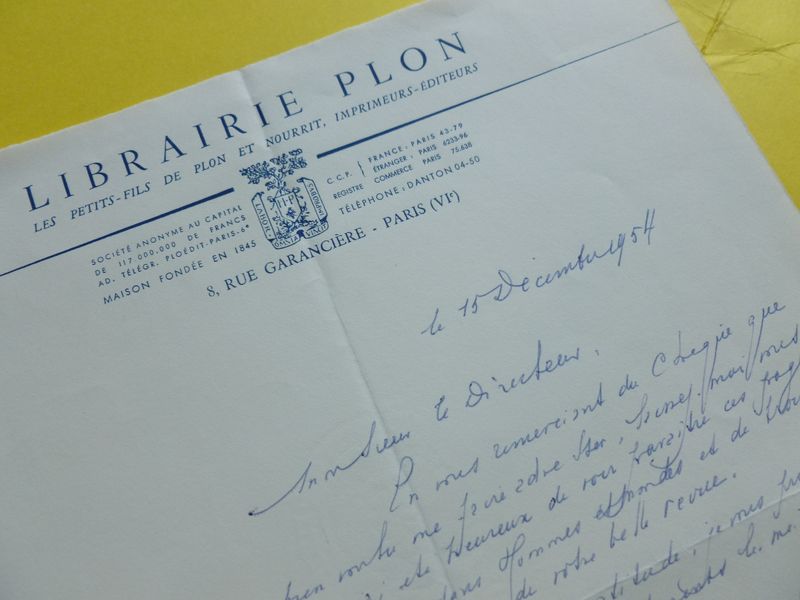 LIBRAIRIE PLON
LES PETITS-FILS DE PLON ET NOURRIT, IMPRIMEURS-ÉDITEURS
SOCIÉTÉ ANONYME AU CAPITAL
DE 117.000.000 DE FRANCS
AD. TÉLÉGR. PLOÉDIT-PARIS-6e
MAISON FONDÉE EN 1845
LABOR
OMNIA VINCIT
IMPROBUS
C.C.P. FRANCE: PARIS 43-79
ÉTRANGER: PARIS 6233-96
REGISTRE COMMERCE PARIS 75.638
TÉLÉPHONE: DANTON 04-50
8, RUE GARANCIÈRE - PARIS (VIe)
le 15 Décembre 1954
Monsieur le Directeur,
En vous remerciant du chèque que
bien voulu me faire
été heureux de voir paraître ces
dans Hommes et Mondes et de
de votre belle revue.
je vous